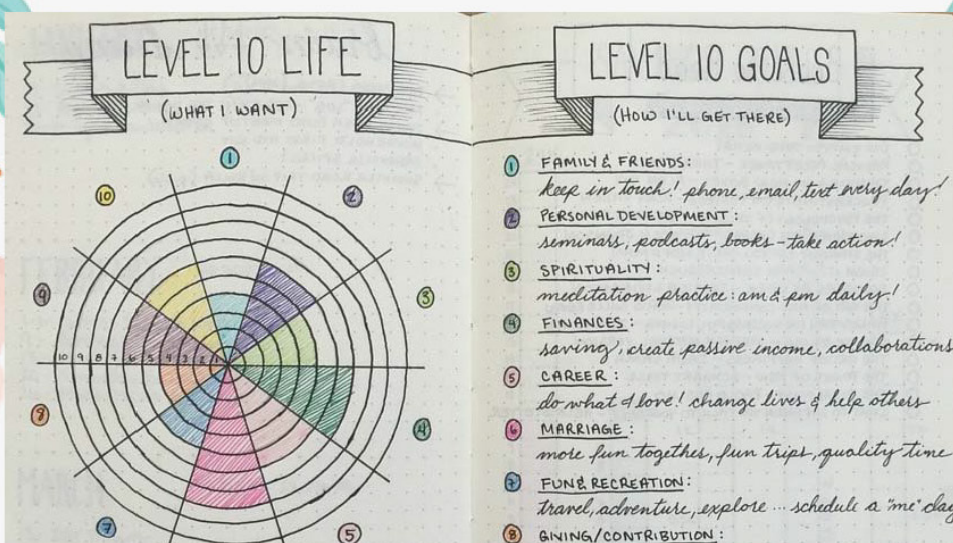 LEVEL 10 LIFE
(WHAT I WANT)
1
2
3
4
5
7
8
9
10
10 9 8 7 6 5 4 3 2 1
LEVEL 10 GOALS
(HOW I'LL GET THERE)
1 FAMILY & FRIENDS:
keep in touch! phone, email, text every day!
2 PERSONAL DEVELOPMENT:
seminars, podcasts, books - take action!
3 SPIRITUALITY:
meditation practice: am & pm daily!
4 FINANCES:
saving, create passive income, collaborations
5 CAREER:
do what I love! change lives & help others
6 MARRIAGE:
more fun together, fun trips, quality time
7 FUN & RECREATION:
travel, adventure, explore ... schedule a "me" day
8 GIVING/CONTRIBUTION: